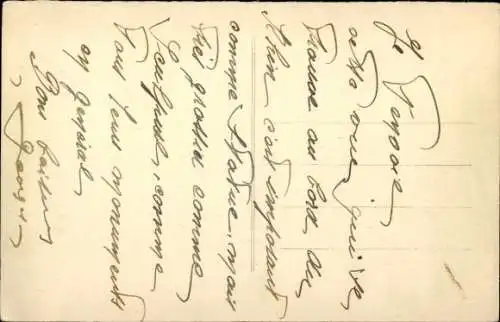 Je t'envoie
cette vue, qui se
trouve au bord du
Rhin c'est imposant
comme statue, mais
très grossier comme
sculpture, comme
tous leurs monuments
en général
Bons baisers
Georges